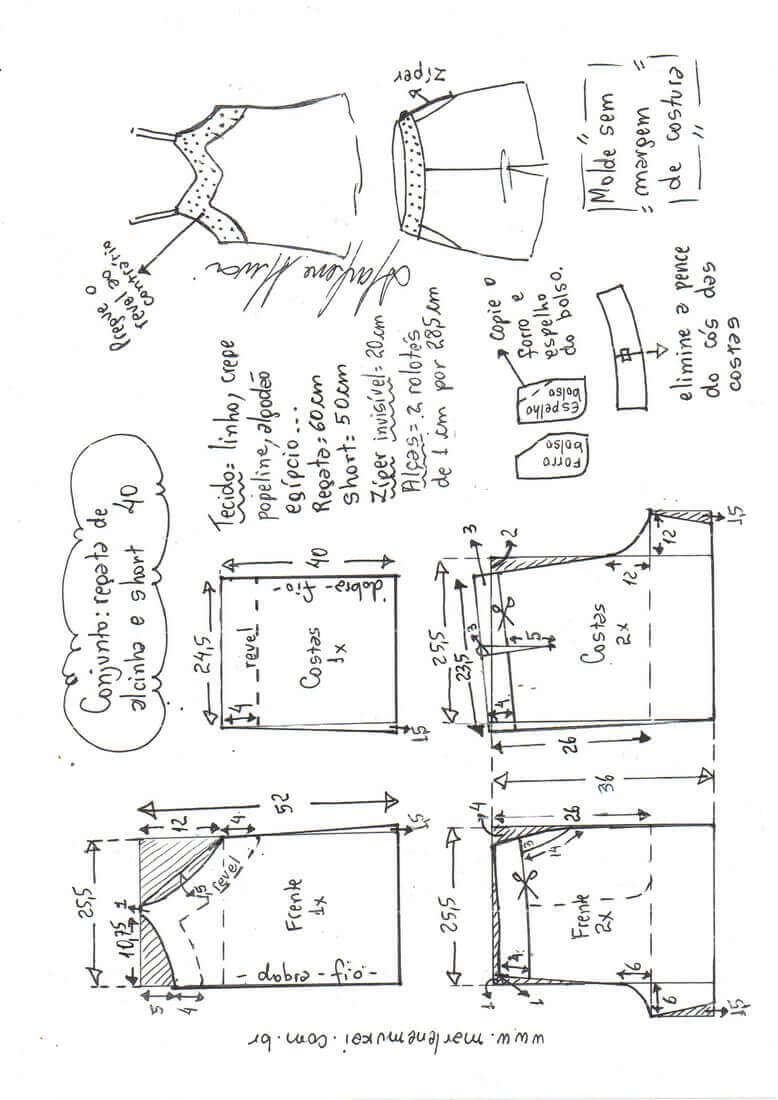 Conjunto: regata de
alcinha e short 40
Pregue o
revel ao
contrário
Zíper
Marlene Mukai
Molde sem
margem
de costura
Tecido= linho, crepe
popeline, algodão
egípcio...
Regata= 60cm
short= 50cm
Zíper invisível= 20cm
Alças= 2 rolotés
de 1 cm por 28,5 cm
copie o
forro e
espelho
do bolso.
Espelho
bolso
Forro
bolso
elimine a pence
do cós das
costas
25,5
10,75
1
5
4
12
4
1,5
revel
Frente
1x
-dobra-fio-
52
1,5
24,5
4
revel
Costas
1x
dobra-fio-
40
1,5
25,5
4
1
4
1
3
14
26
Frente
2x
6
6
1,5
36
25,5
23,5
3
3
2
4
5
26
Costas
2x
12
12
1,5
www.marlenemukai.com.br